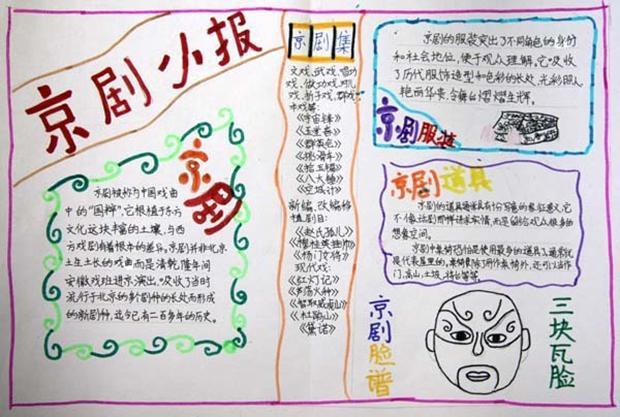 京剧小报
京剧
京剧被称为中国戏曲
中的“国粹”,它根植于东方
文化这块丰富的土壤,与西
方戏剧有着根本的差异。京剧并非北京
土生土长的戏曲而是清乾隆年间
安徽戏班进京演出,吸收了当时
流行于北京的多个剧种的长处而形成
的新剧种,迄今已有二百多年的历史。
京剧集
文戏、武戏、唱功
戏、做功戏、对儿
戏、折子戏、群戏
本戏等:
《宇宙锋》
《玉堂春》
《群英会》
《挑滑车》
《拾玉镯》
《八大锤》
《空城计》
新编、改编移
植剧目:
《赵氏孤儿》
《穆桂英挂帅》
《杨门女将》
现代戏:
《红灯记》
《芦荡火种》
《智取威虎山》
《杜鹃山》
《黛诺》
京剧的服装突出了不同角色的身份
和社会地位,便于观众理解,它吸收
了历代服饰造型和色彩的长处,光彩照人
艳丽华贵,令舞台熠熠生辉。
京剧服装
京剧道具
京剧的道具通常具有份写意的象征意义,它
不像话剧那样讲求实情,而是留给观众很多的
想象空间。
京剧中桌椅恐怕是使用最多的道具了,通常就
是代表屋里的,桌椅除了用作桌椅外,还可以当作
门、高山、土坡、楼台等等。
京剧脸谱
三块瓦脸